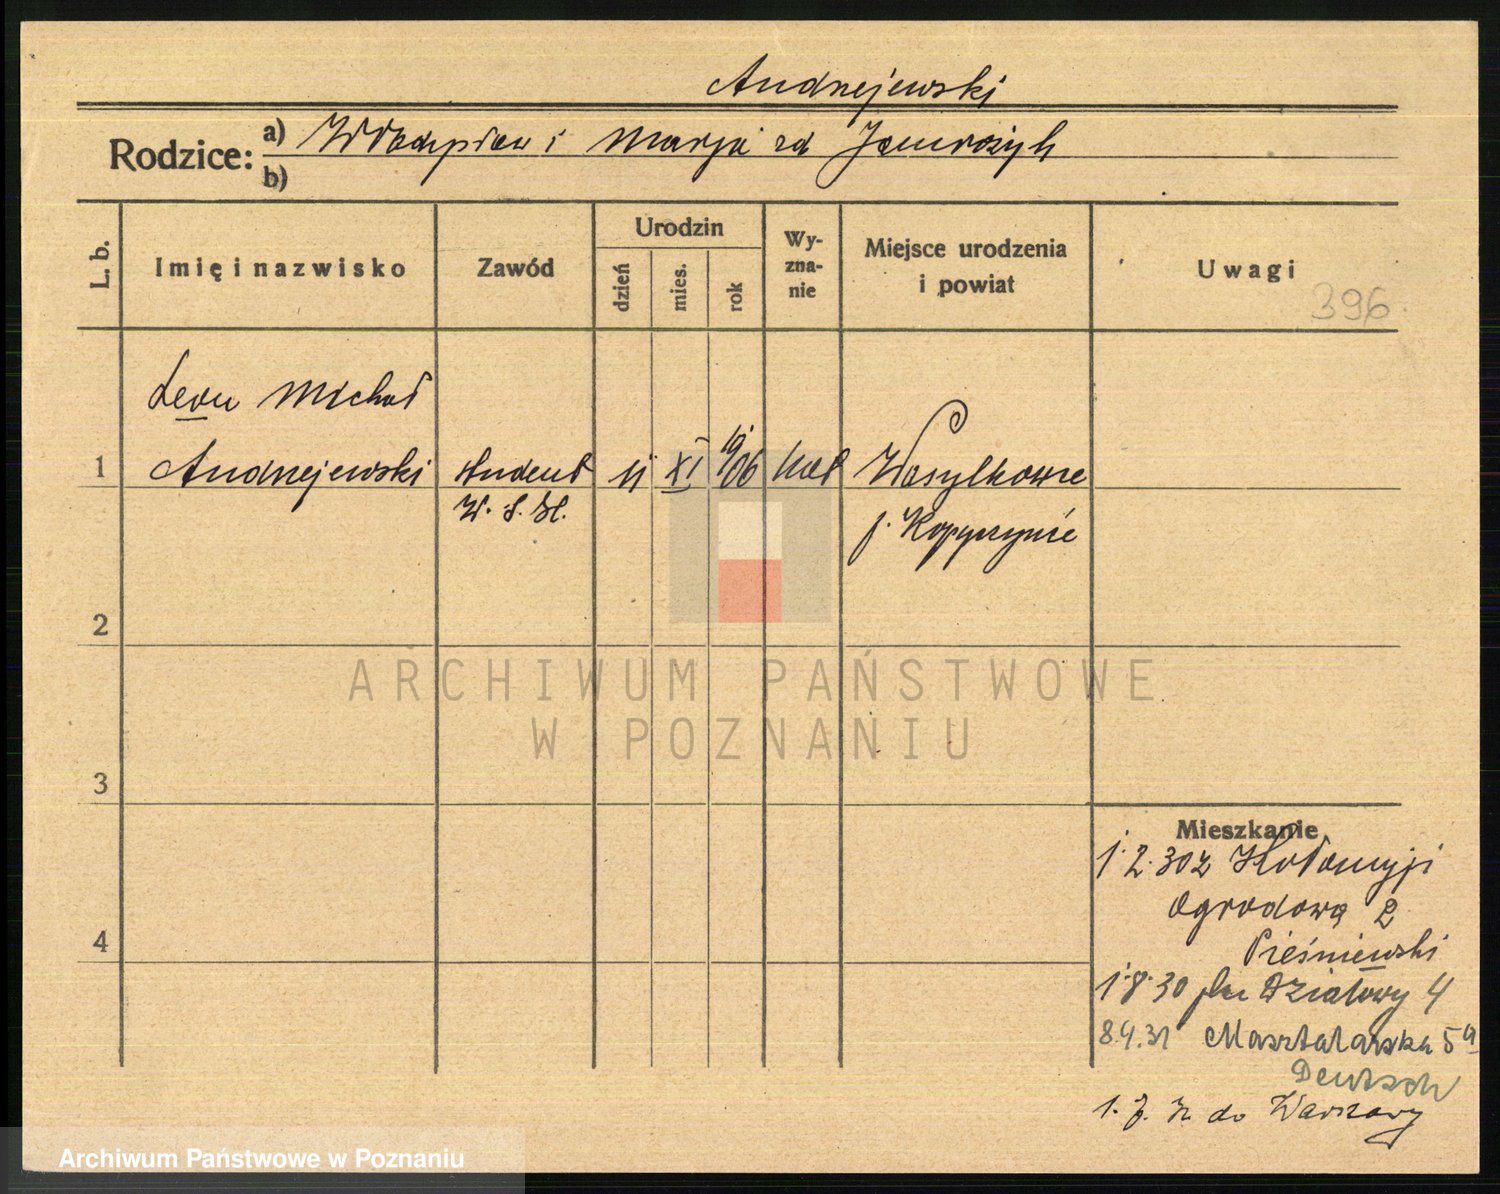 Andrzejewski
Rodzice: a) Władysław i Marja zd
b)
L. b.
Imię i nazwisko
Zawód
Urodzin
dzień
mies.
rok
Wy-
zna-
nie
Miejsce urodzenia
i powiat
Uwagi
396
Leon Michał
1 Andrzejewski student 11 XI 1906 kat Wasylkowce
W. S. H.
p. Kopyczyńce
2
3
4
ARCHIWUM PAŃSTWOWE
W POZNANIU
Mieszkanie
1.2.30 z Kołomyji
Ogrodowa 2
Pieśniewski
1.8.30 plac Działowy 4
8.4.31 Masztalarska 5a
Deutsch
do Warszawy
Archiwum Państwowe w Poznaniu